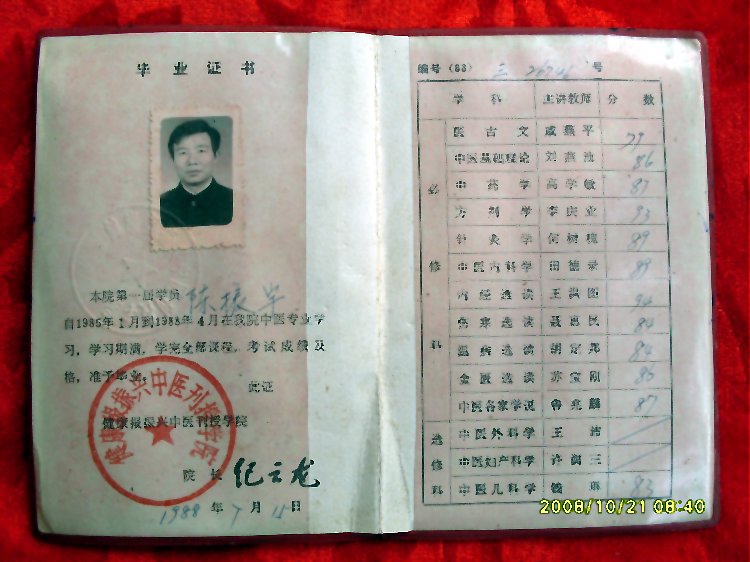 毕业证书
本院第一届学员 陈振华
自1985年1月到1988年4月在我院中医专业学
习，学习期满，学完全部课程，考试成绩及
格，准予毕业。
此证
健康报振兴中医刊授学院
院长 纪云龙
1988年7月15日
健康报振兴中医刊授学院
编号（88） 号
学科 主讲教师 分数
必修科
医古文 成燕平 77
中医基础理论 刘燕池 86
中药学 高学敏 87
方剂学 李庆业 93
针灸学 何树槐 89
中医内科学 田德录 89
内经选读 王洪图 94
伤寒选读 聂惠民 84
温病选读 胡定邦 84
金匮选读 苏宝刚 86
中医各家学说 鲁兆麟 87
选修科
中医外科学 王沛
中医妇产科学 许润三
中医儿科学 83
2008/10/21 08:40